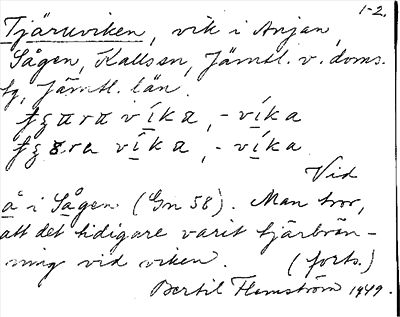 1-2.
Tjäruviken, vik i Anjan,
Sågen, Kallssn, Jämtl. v. doms.
fg, Jämtl. län.
víka, - víka
víka, - víka
Vid
å i Sågen (Gn 58). Man tror,
att det tidigare varit tjärbrän-
ning vid viken. (forts.)
Bertil Flemström 1949.